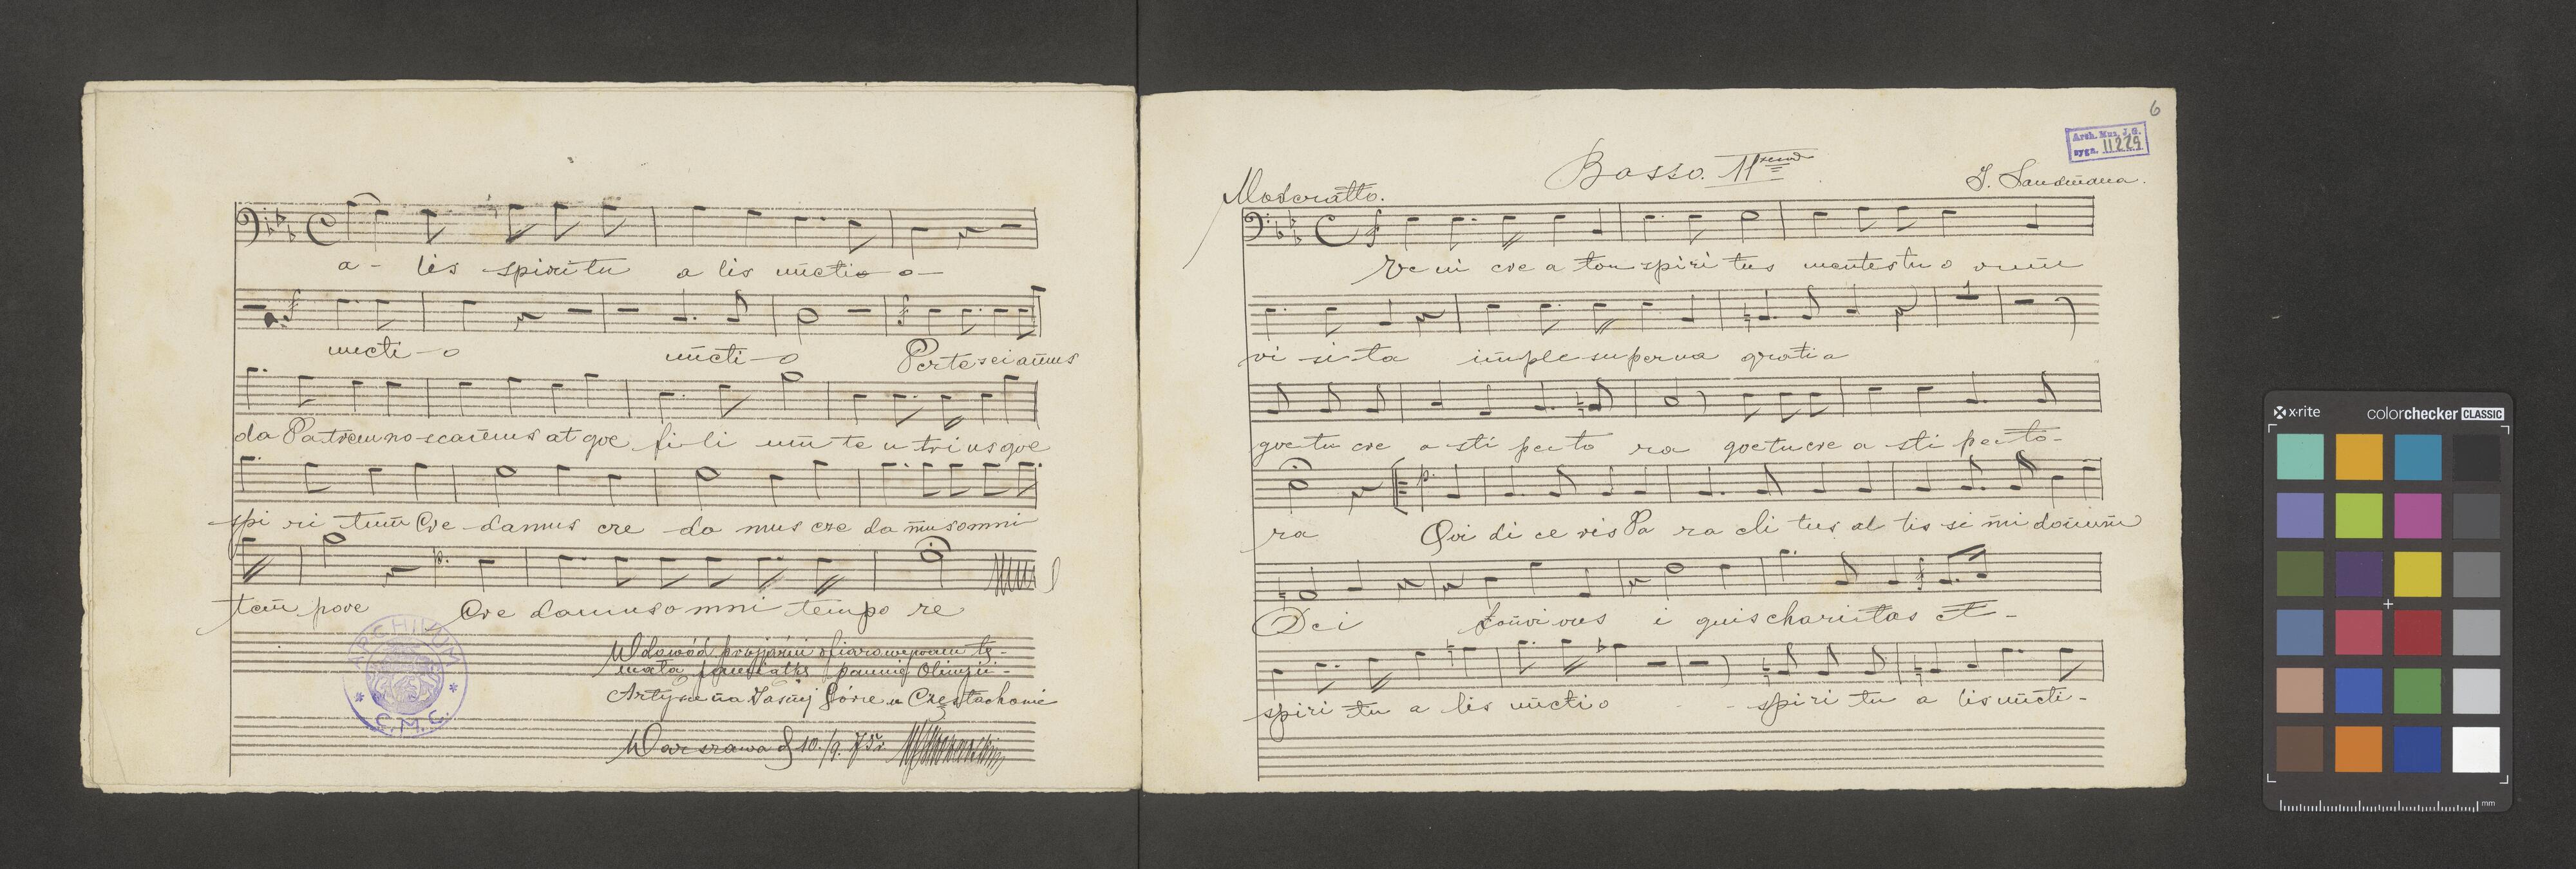 a - lis spiritu a lis unctio o -
uncti - o uncti - o Perte sciamus
da Patrem no - scamus at qve fi - li um te u tri us qve
spi ri tum Cre - damus cre - da mus cre da mus omni
tem pore Cre damus o mni tempo re
ARCHIWUM
C.M.C.
Wdowód przyjaźni ofiarowywam tę -
Artyście na Jasnéj Górze w Częstochowie
Warszawa d 10./9.
6
Arch. Muz. J. G.
sygn. II 229
Basso. II
Moderatto.
Ve ni cre a tor spiri tus mentes tu o rum
vi - si - ta imple superna gratia
qve tu cre a sti pecto ra qve tu cre a sti pecto -
ra Qvi di ce ris Pa ra cli tus al tis si mi donum
Dei fons vi vus i gnis charitas et -
spiri tu a lis unctio - - spiri tu a lis uncti -
x·rite colorchecker CLASSIC
mm